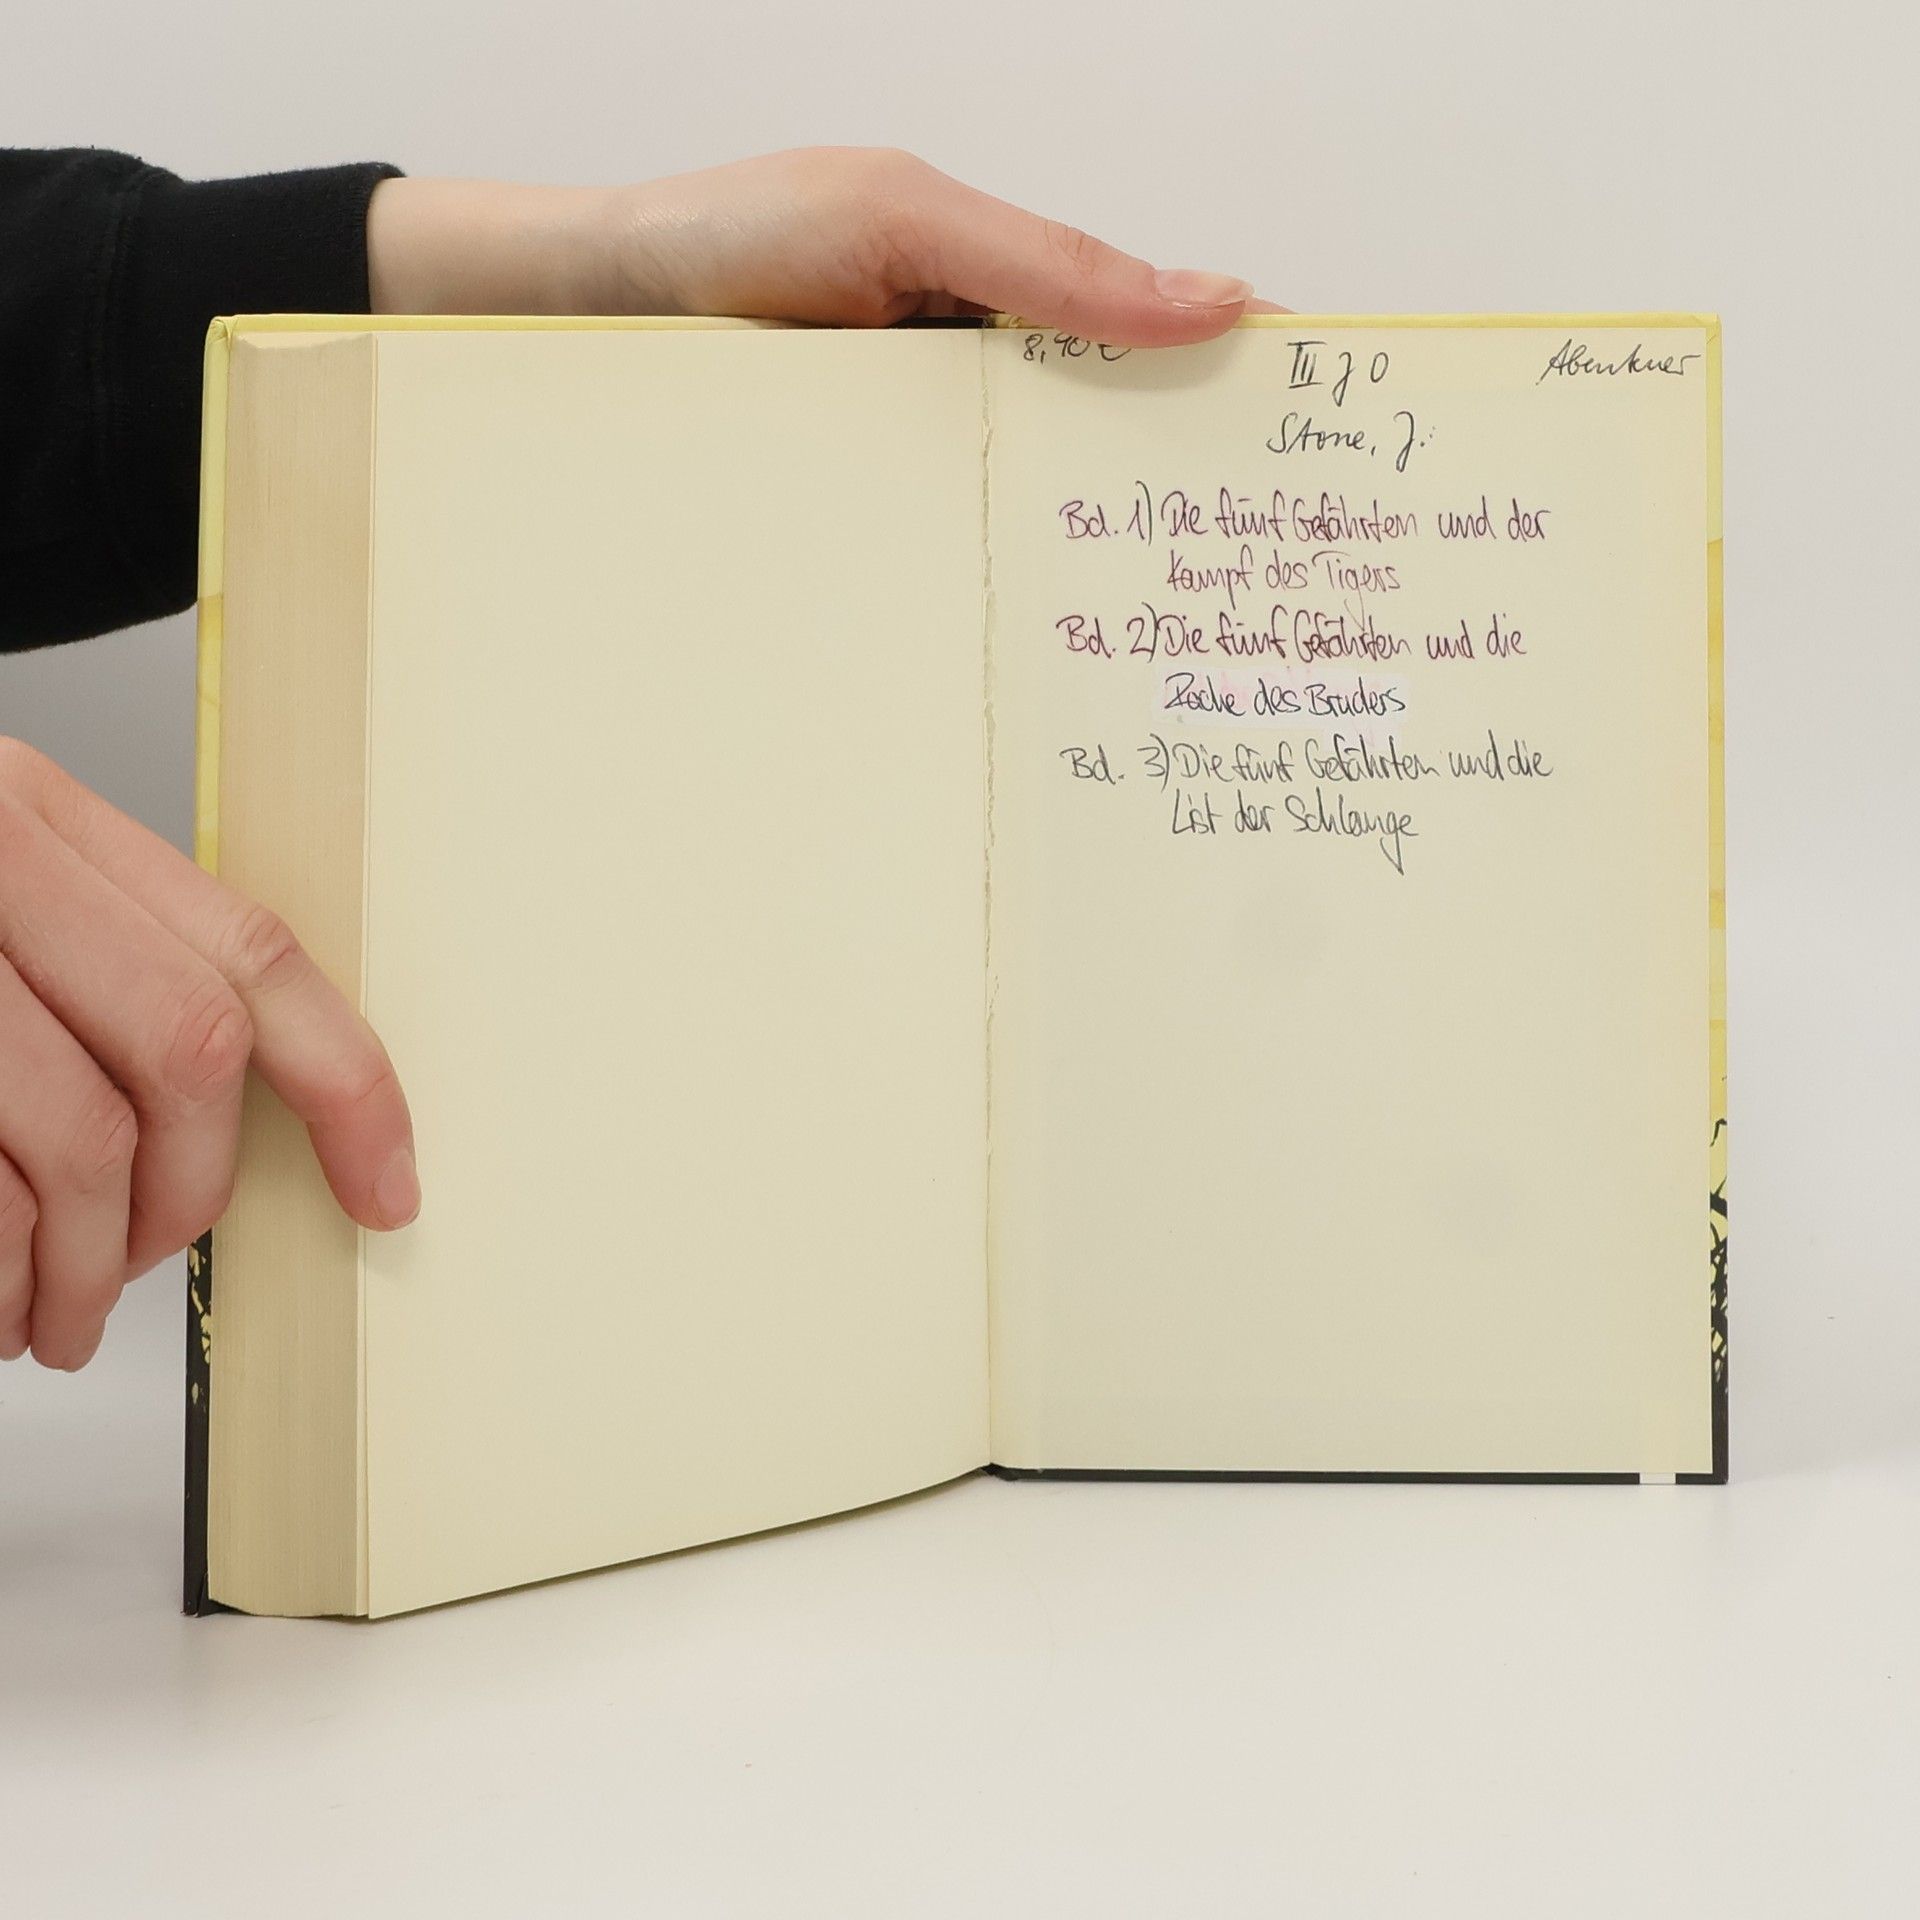 8,90 €
III J 0
Abenteuer
Stone, J.:
Bd. 1) Die fünf Gefährten und der
Kampf des Tigers
Bd. 2) Die fünf Gefährten und die
Rache des Bruders
Bd. 3) Die fünf Gefährten und die
List der Schlange